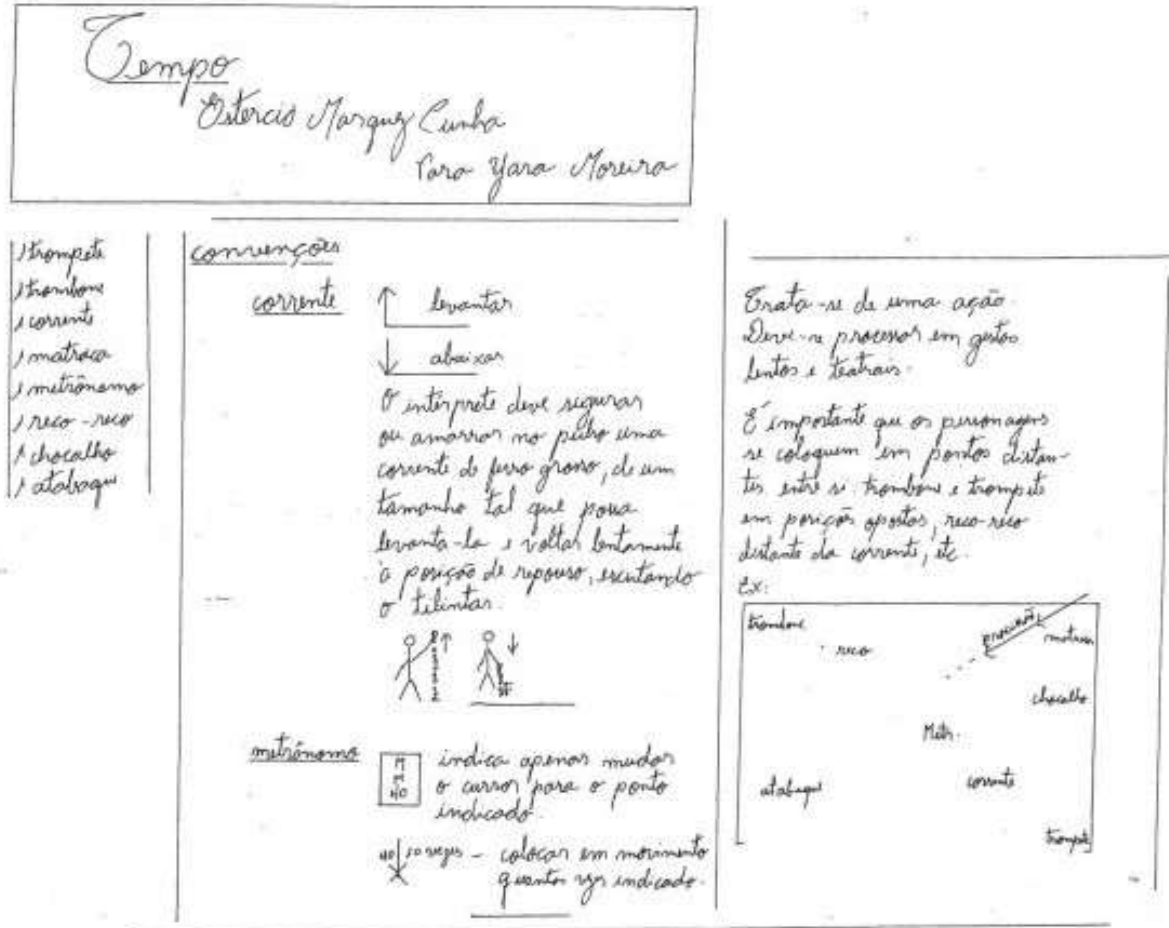 Tempo
Estercio Marquez Cunha
Para Yara Moreira
1 trompete
1 trombone
1 corrente
1 matraca
1 metrônomo
1 reco-reco
1 chocalho
1 atabaque
convenções
corrente
levantar
abaixar
O intérprete deve segurar
ou amarrar no pulso uma
corrente de ferro grosso, de um
tamanho tal que possa
levanta-la e voltar lentamente
à posição de repouso, escutando
o telintar.
metrônomo
M
M
40
indica apenas mudar
o cursor para o ponto
indicado.
40 10 vezes - colocar em movimento
quantas vzs indicado.
Trata-se de uma ação.
Deve-se processar em gestos
lentos e teatrais.
É importante que os personagens
se coloquem em pontos distan-
tes entre si: trombone e trompete
em posições opostas, reco-reco
distante da corrente, etc.
Ex:
trombone
reco
matraca
chocalho
Metr.
atabaque
corrente
trompete